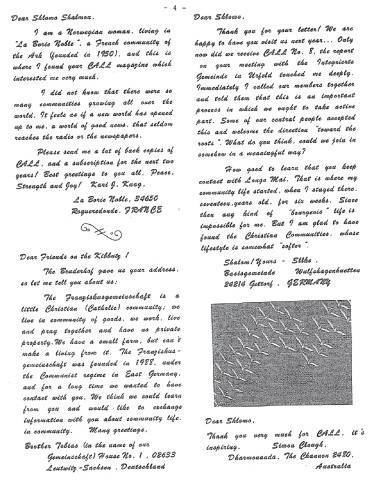 - 4 -
Dear Shlomo Shalmon.
I am a Norwegian woman, living in
"La Borie Noble", a French community of
the Ark (founded in 1950), and this is
where I found your CALL magazine which
interested me very much.
I did not know that there were so
many communities growing all over the
world. It feels as if a new world has opened
up to me, a world of good news, that seldom
reaches the radio or the newspapers.
Please send me a lot of back copies of
CALL, and a subscription for the next two
years! Best greetings to you all. Peace,
Strength and Joy! Kari J.
La Borie Noble, 34650
Roqueredonde. FRANCE
Dear Friends on the Kibbutz !
The Bruderhof gave us your address,
so let me tell you about us:
The Franziskusgemeinschaft is a
little Christian (Catholic) community; we
live in community of goods, we work, live
and pray together and have no private
property. We have a small farm, but can't
make a living from it. The Franziskus-
gemeinschaft was founded in 1988, under
the Communist regime in East Germany,
and for a long time we wanted to have
contact with you. We think we could learn
from you and would like to exchange
information with you about community life.
in community. Many greetings,
Brother Tobias (in the name of our
Gemeinschaft) House No. 1 . 08633
Leutwitz-Sachsen . Deutschland
Dear Shlomo.
Thank you for your letter! We are
happy to have you visit us next year... Only
now did we receive CALL No. 8, the report
on your meeting with the Integrierte
Gemeinde in Urfeld touched me deeply.
Immediately I called our members together
and told them that this is an important
process in which we ought to take active
part. Some of our central people accepted
this and welcome the direction "toward the
roots". What do you think, could we join in
somehow in a meaningful way?
How good to learn that you keep
contact with Longo Mai. That is where my
community life started, when I stayed there,
seventeen years old, for six weeks. Since
then any kind of "bourgeois" life is
impossible for me. But I am glad to have
found the Christian Communities, whose
lifestyle is somewhat "softer"
Shalom! Yours -
Basisgemeinde Wulfshagenhuetten
24214 Gettorf . GERMANY
Dear Shlomo,
Thank you very much for CALL, it's
inspiring. Simon Clough,
Dharmananda, The Channon 2480.
Australia